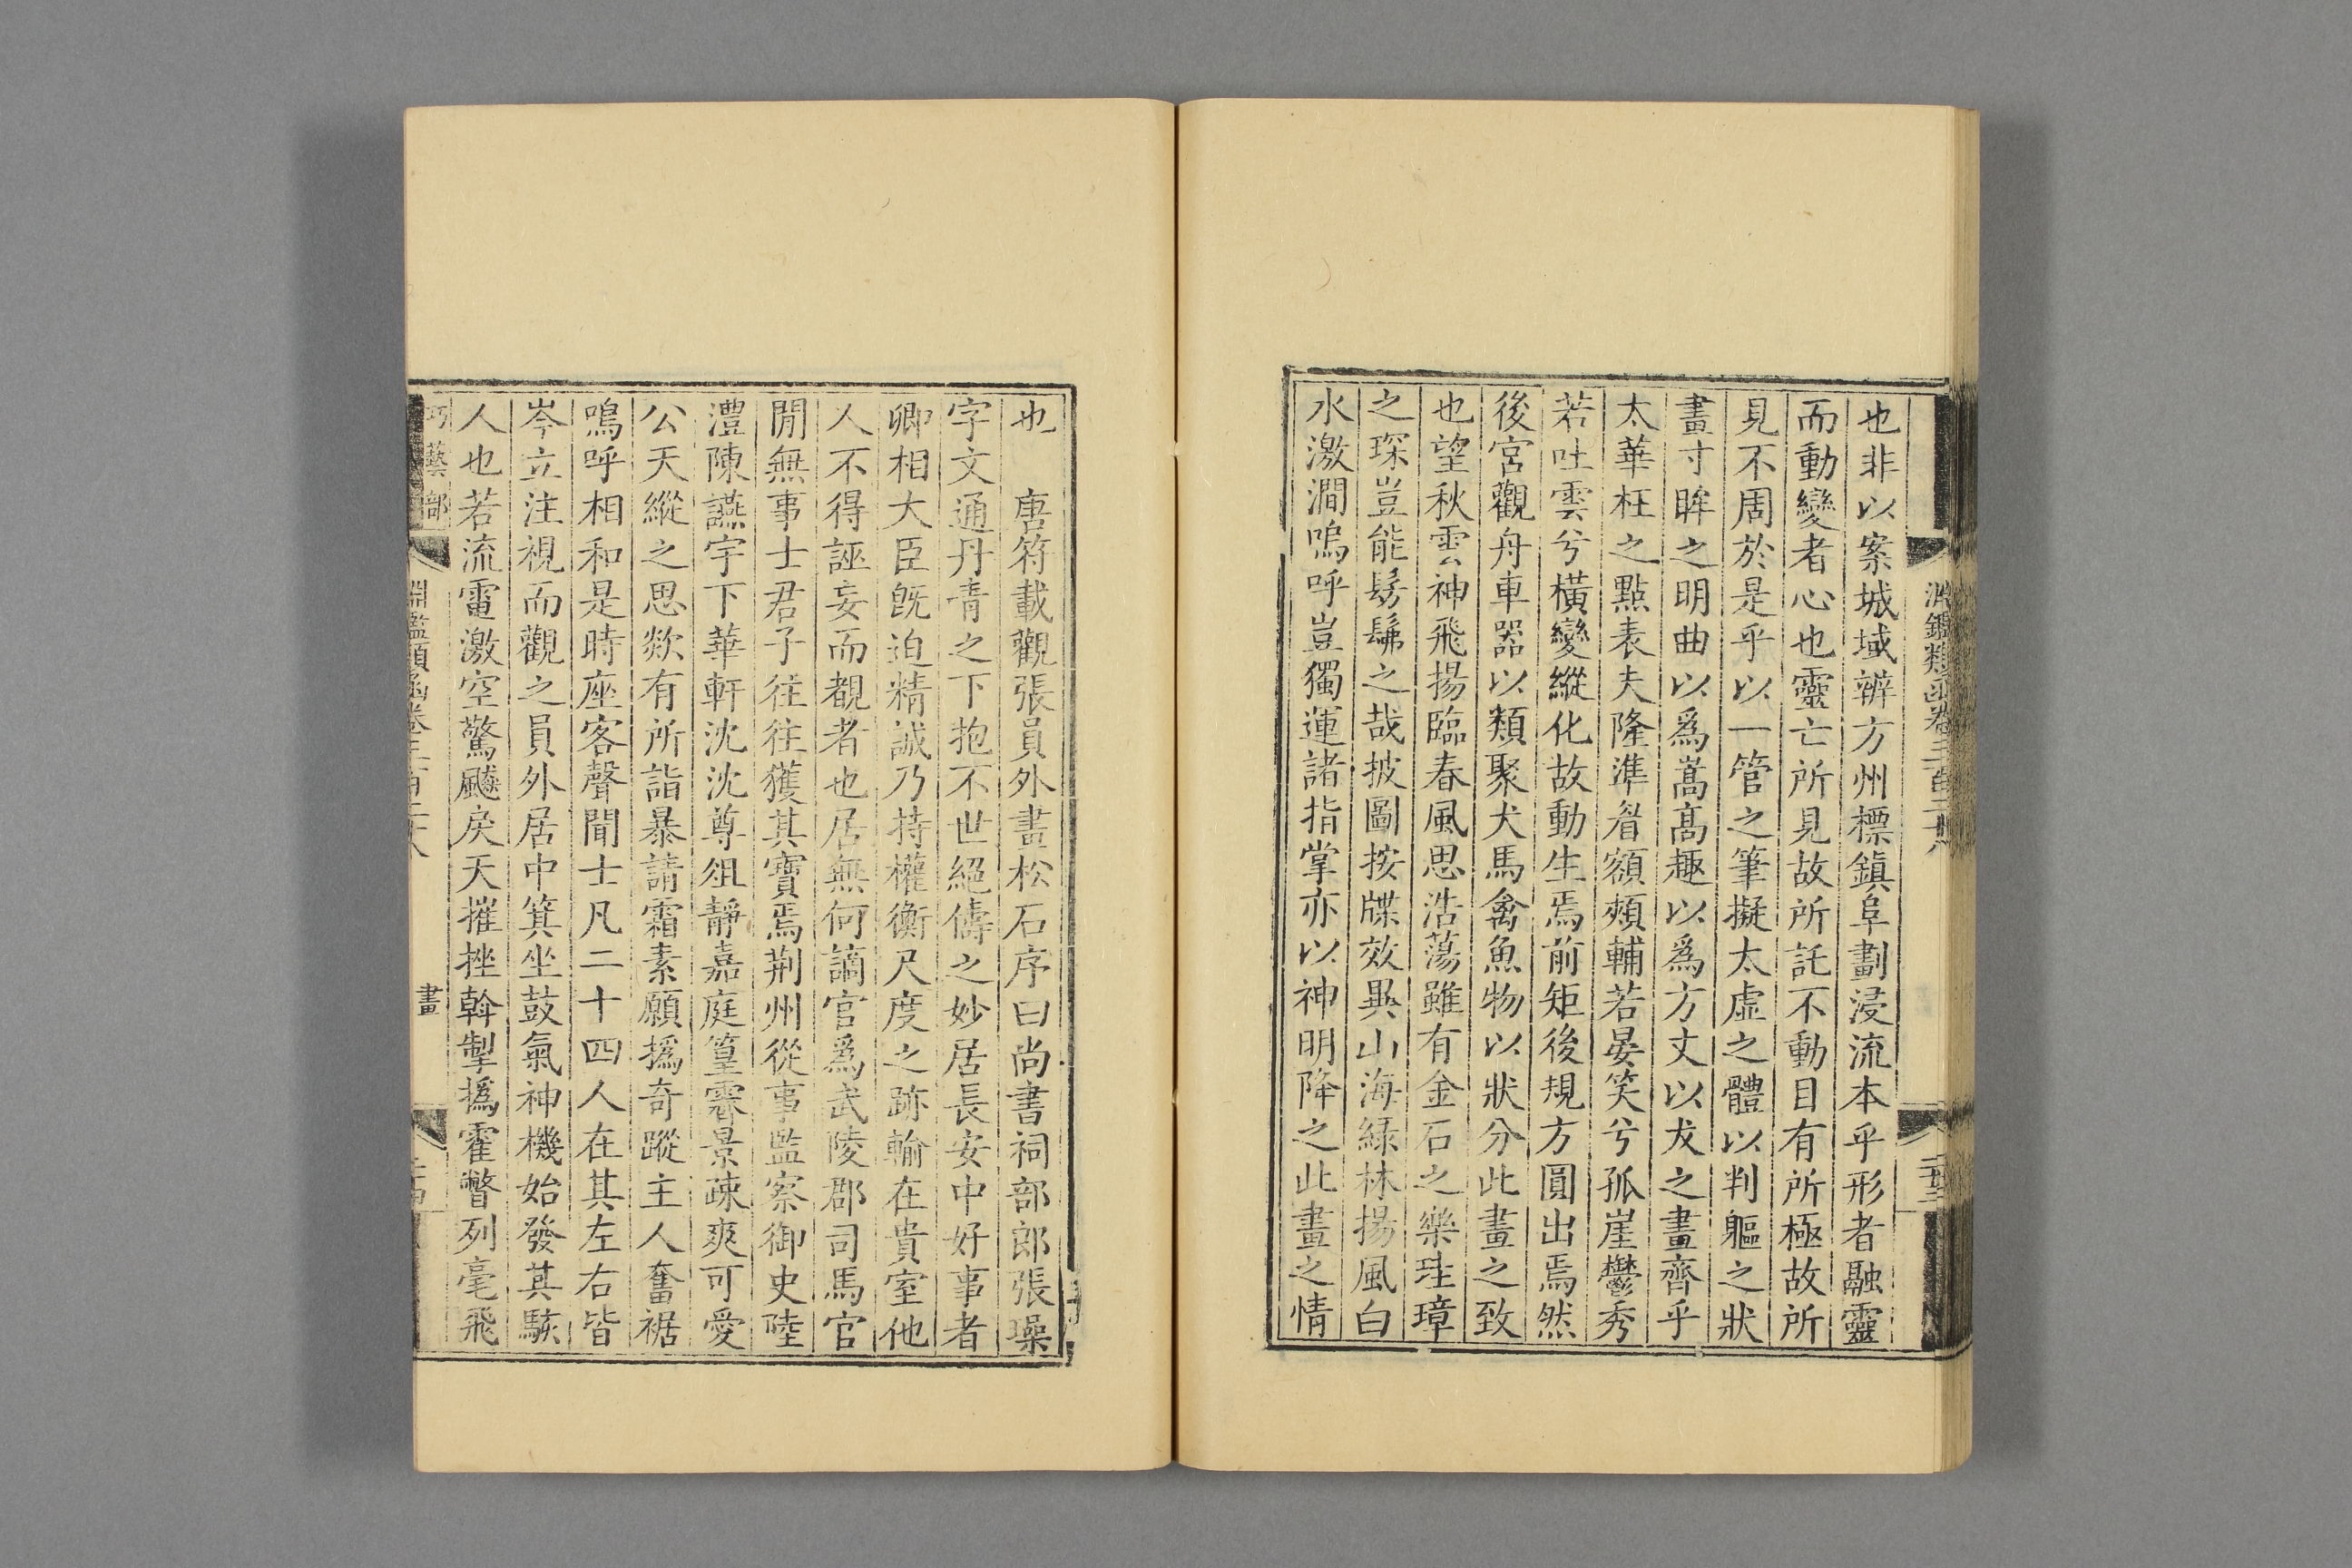 也非以案城域辨方州標鎮阜劃浸流本乎形者融靈
而動變者心也靈亡所見故所託不動目有所極故所
見不周於是乎以一管之筆擬太虛之體以判軀之狀
畫寸眸之明曲以爲嵩高趣以爲方丈以犮之畫齊乎
太華枉之點表夫隆準眉額頰輔若晏笑兮孤崖鬱秀
若吐雲兮橫變縱化故動生焉前矩後規方圓出焉然
後宮觀舟車器以類聚犬馬禽魚物以狀分此畫之致
也望秋雲神飛揚臨春風思浩蕩雖有金石之樂珪璋
之琛豈能髣髴之哉披圖按牒效異山海綠林揚風白
水激澗嗚呼豈獨運諸指掌亦以神明降之此畫之情
也　唐符載觀張員外畫松石序曰尚書祠部郎張璪
字文通丹青之下抱不世絕儔之妙居長安中好事者
卿相大臣旣迫精誠乃持權衡尺度之跡輸在貴室他
人不得誣妄而覩者也居無何謫官爲武陵郡司馬官
閒無事士君子往往獲其寶焉荆州從事監察御史陸
澧陳讌宇下華軒沈沈尊俎靜嘉庭篁霽景疎爽可愛
公天縱之思欻有所詣暴請霜素願撝奇蹤主人奮裾
嗚呼相和是時座客聲聞士凡二十四人在其左右皆
岑立注視而觀之員外居中箕坐鼓氣神機始發其駭
人也若流電激空驚飈戾天摧挫斡掣撝霍瞥列毫飛
巧藝部
畫